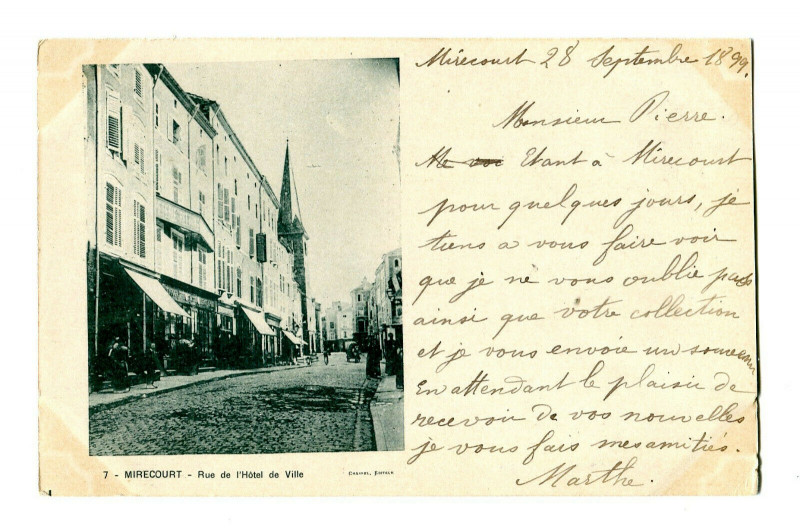 Mirecourt 28 Septembre 1899.
Monsieur Pierre.
Me voi Etant à Mirecourt
pour quelques jours, je
tiens a vous faire voir
que je ne vous oublie pas
ainsi que votre collection
et je vous envoie un souvenir
En attendant le plaisir de
recevoir de vos nouvelles
je vous fais mes amitiés.
Marthe.
7 - MIRECOURT - Rue de l'Hôtel de Ville
Editeur